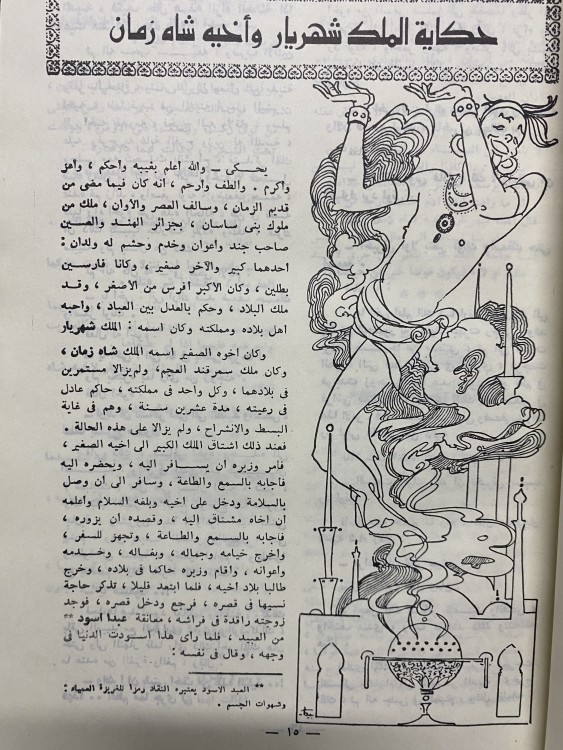 حكاية الملك شهريار وأخيه شاه زمان
يحـــكى — والله أعلم بغيبه وأحكم ، وأعز
وأكرم . والطف وأرحم ، انه كان فيما مضى من
قديم الزمان ، وسالف العصر والأوان ، ملك من
ملوك بنى ساسان ، بجزائر الهند والصين
صاحب جند وأعوان وخدم وحشم له ولدان :
احدهما كبير والآخر صغير ، وكانا فارسين
بطلين ، وكان الأكبر أفرس من الأصغر ، وقد
ملك البلاد ، وحكم بالعدل بين العباد ، واحبه
اهل بلاده ومملكته وكان اسمه : الملك شهريار
وكان اخوه الصغير اسمه الملك شاه زمان ،
وكان ملك سمرقند العجم، ولم يزالا مستمرين
فى بلادهما ، وكل واحد فى مملكته ، حاكم عادل
فى رعيته ، مدة عشرين سنة ، وهم فى غاية
البسط والانشراح ، ولم يزالا على هذه الحالة .
فعند ذلك اشتاق الملك الكبير الى اخيه الصغير ،
فأمر وزيره ان يســـافر اليه ، ويحضره اليه
فأجابه بالسمع والطاعة ، وسافر الى ان وصل
بالسلامة ودخل على اخيه وبلغه السلام وأعلمه
ان اخاه مشتاق اليه ، وقصده ان يزوره ،
فأجابه بالســـمع والطاعة ، وتجهز للسفر ،
وأخرج خيامه وجماله ، وبغاله ، وخـــدمه
وأعوانه ، وأقام وزيره حاكما فى بلاده ، وخرج
طالبا بلاد اخيه ، فلما ابتعد قليلا ، تذكر حاجة
نسيها فى قصره ، فرجع ودخل قصره ، فوجد
زوجته راقدة فى فراشه ، معانقة عبدا أسود **
من العبيد ، فلما رأى هذا اسـودت الدنيا فى
وجهه ، وقال فى نفسه :
** العبد الاسود يعتبره النقاد رمزا للغريزة العمياء :
وشهوات الجسم .
— ١٥ —